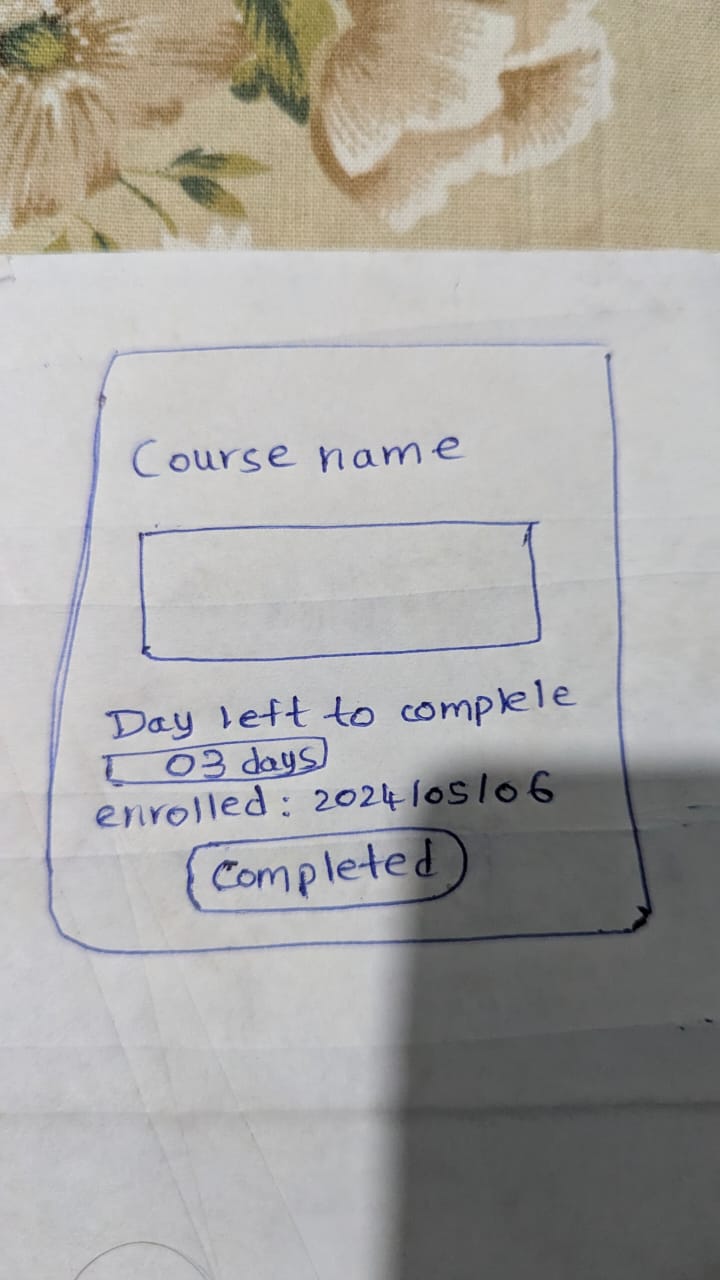 Course name
Day left to complele
03 days
enrolled: 2024/05/06
Completed